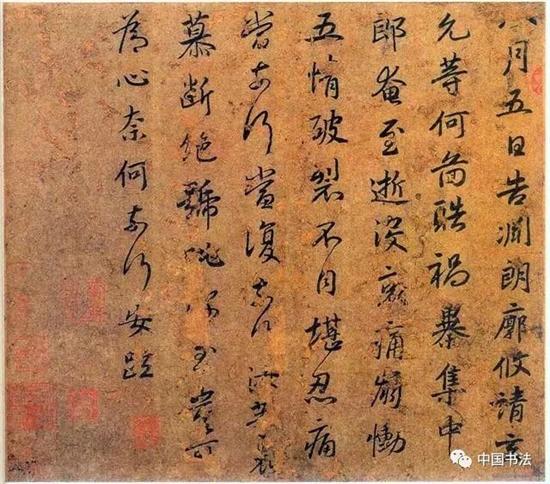 八月五日告淵朗廓攸靖玄
允等何啚酷禍暴集中
郎奄至逝没哀痛崩慟
五情破裂不自堪忍痛
當奈何當復奈何汝等哀
慕斷絶號咷深至豈可
為心奈何奈何安疏
中国书法